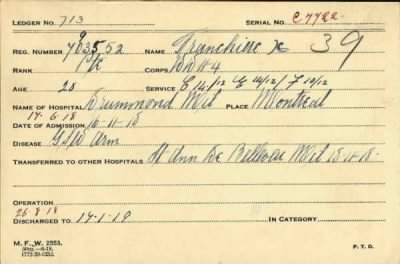 LEDGER No. 713 SERIAL No. C7722.
REG. NUMBER 703552 NAME Franchise 39
RANK Pte CORPS
AGE 20 SERVICE C 14/12 E 10/12 / F 10/12
NAME OF HOSPITAL Drummond Mil PLACE Montreal
17-6-18
DATE OF ADMISSION 16-11-18
DISEASE GSW Arm
TRANSFERRED TO OTHER HOSPITALS St Ann De Bellevue Mil 18-11-18.
OPERATION
26-8-18
DISCHARGED TO 14-1-18 IN CATEGORY
M. F. W. 2553.
50M.—6-18.
1772-39-1253.
P. T. O.